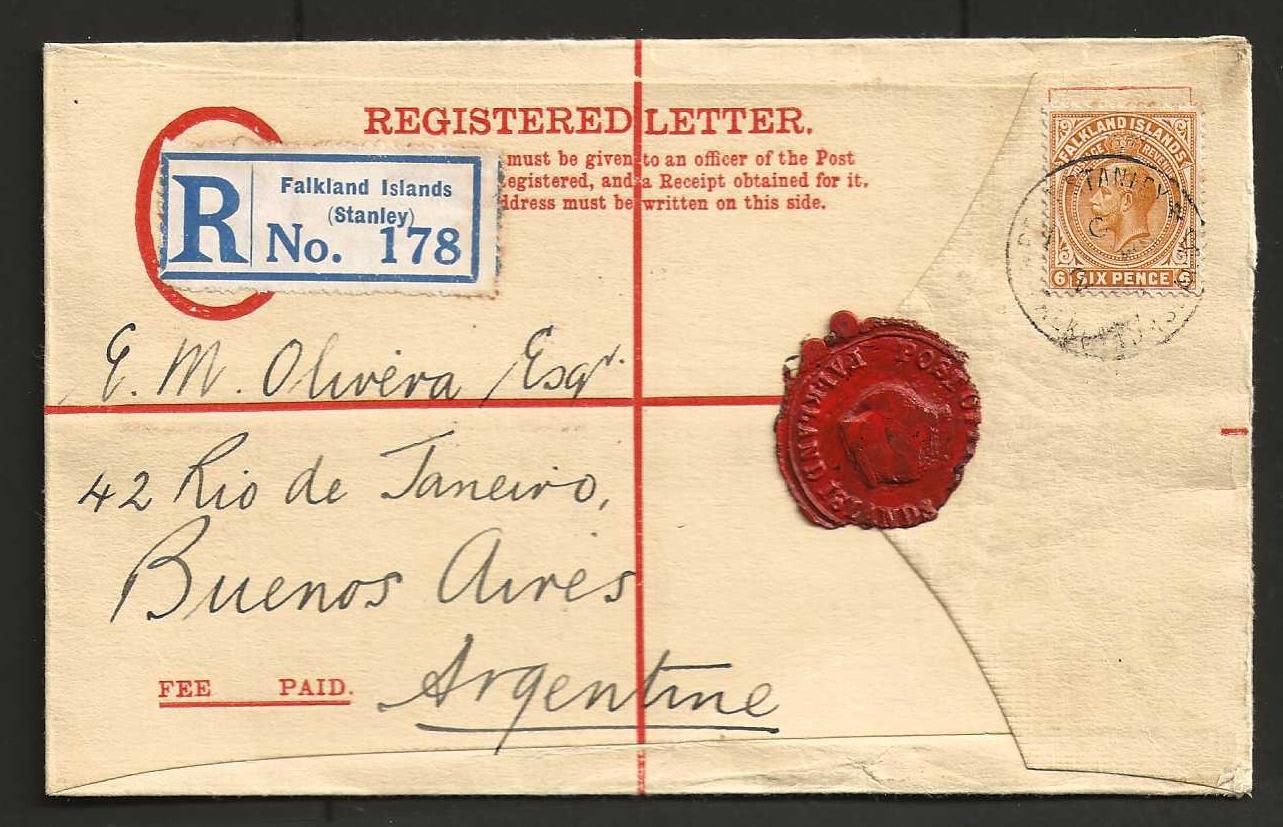 REGISTERED LETTER.
must be given to an officer of the Post
egistered, and a Receipt obtained for it.
ddress must be written on this side.
R
Falkland Islands
(Stanley)
No. 178
FALKLAND ISLANDS
POSTAGE REVENUE
6 SIX PENCE 6
STANLEY
E. M. Olivera Esqr.
42 Rio de Janeiro,
Buenos Aires
Argentine
FEE PAID.
POST OFFICE
FALKLAND ISLANDS